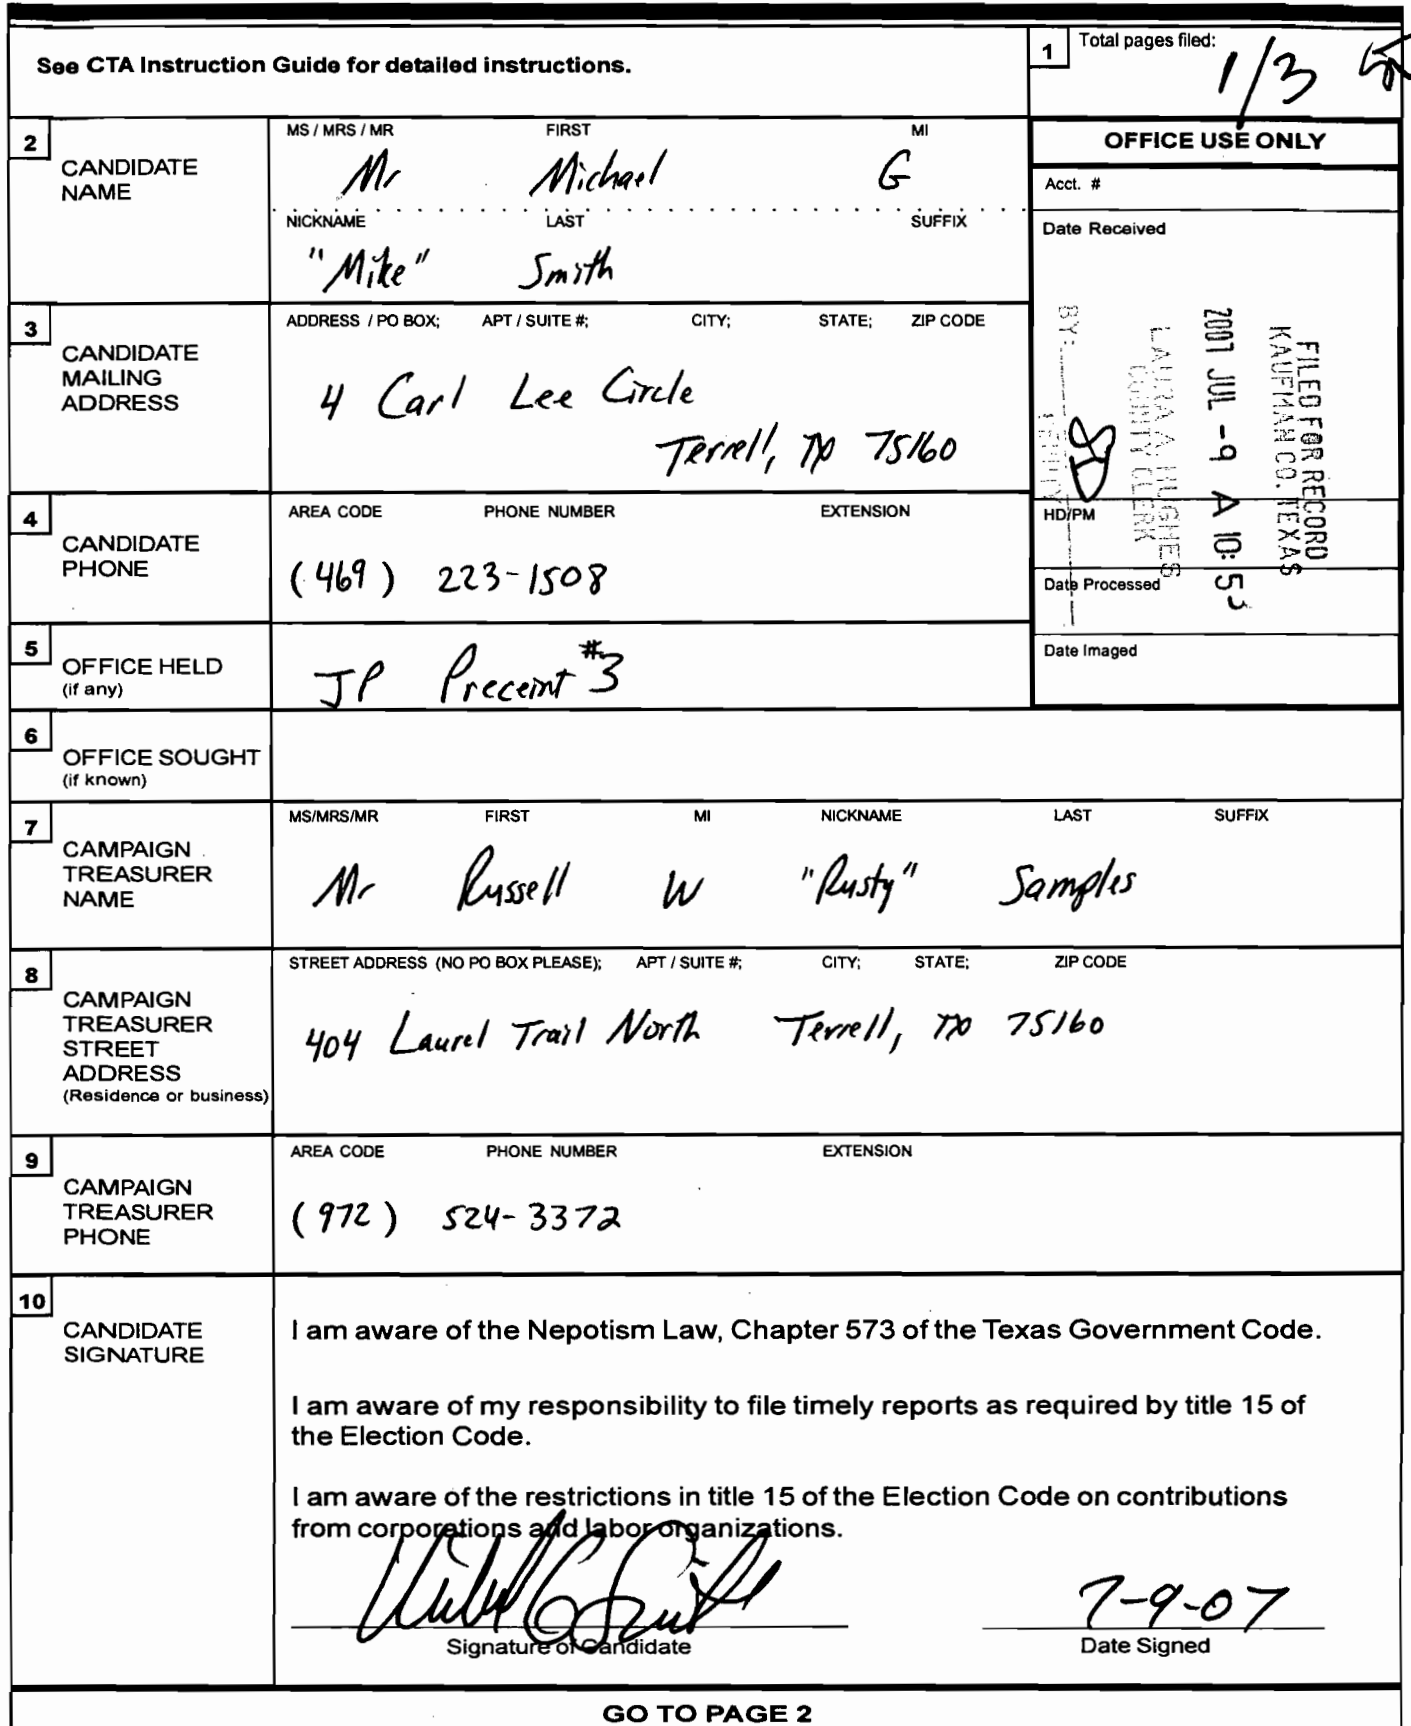 See CTA Instruction Guide for detailed instructions.
1 Total pages filed:
1/3
2 CANDIDATE NAME
MS / MRS / MR FIRST MI
Mr Michael G
NICKNAME LAST SUFFIX
"Mike" Smith
OFFICE USE ONLY
Acct. #
Date Received
FILED FOR RECORD
KAUFMAN CO. TEXAS
2007 JUL -9 A 10: 5
LAURA A. HUGHES
COUNTY CLERK
BY:
DEPUTY
HD/PM
Date Processed
Date Imaged
3 CANDIDATE MAILING ADDRESS
ADDRESS / PO BOX; APT / SUITE #; CITY; STATE; ZIP CODE
4 Carl Lee Circle
Terrell, TX 75160
4 CANDIDATE PHONE
AREA CODE PHONE NUMBER EXTENSION
(469) 223-1508
5 OFFICE HELD
(if any)
JP Precint #3
6 OFFICE SOUGHT
(if known)
7 CAMPAIGN TREASURER NAME
MS/MRS/MR FIRST MI NICKNAME LAST SUFFIX
Mr Russell W "Rusty" Samples
8 CAMPAIGN TREASURER STREET ADDRESS
(Residence or business)
STREET ADDRESS (NO PO BOX PLEASE); APT / SUITE #; CITY; STATE; ZIP CODE
404 Laurel Trail North Terrell, TX 75160
9 CAMPAIGN TREASURER PHONE
AREA CODE PHONE NUMBER EXTENSION
(972) 524-3372
10 CANDIDATE SIGNATURE
I am aware of the Nepotism Law, Chapter 573 of the Texas Government Code.
I am aware of my responsibility to file timely reports as required by title 15 of
the Election Code.
I am aware of the restrictions in title 15 of the Election Code on contributions
from corporations and labor organizations.
Michael G Smith 7-9-07
Signature of Candidate Date Signed
GO TO PAGE 2